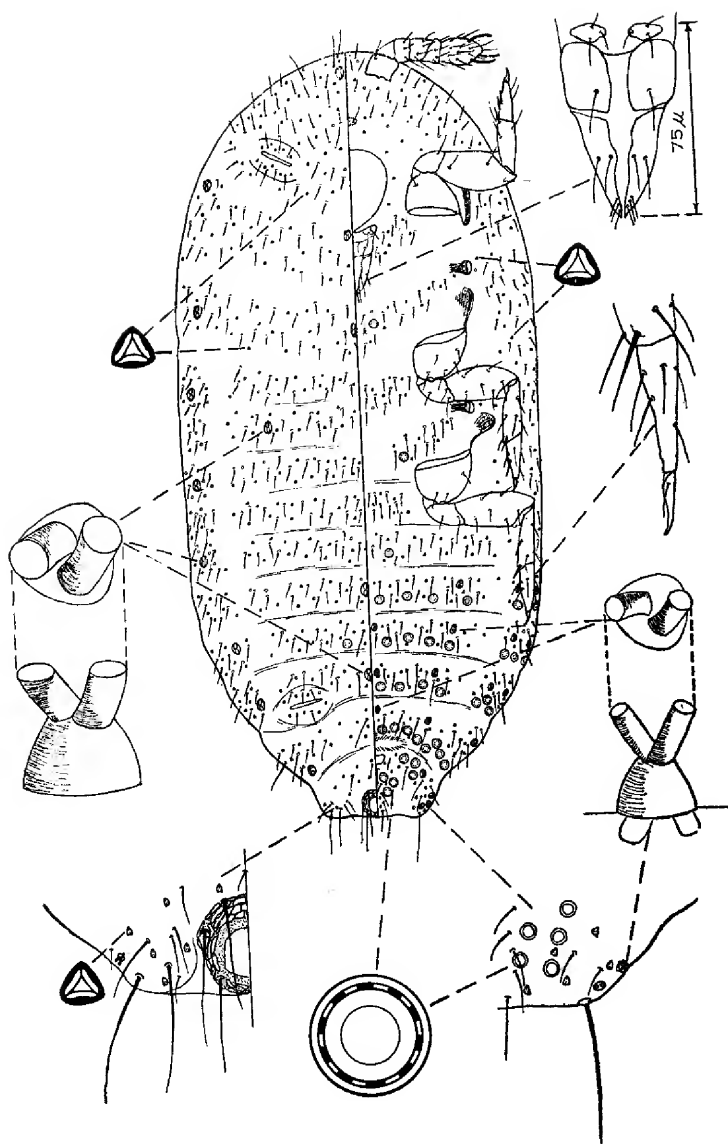 75 μ